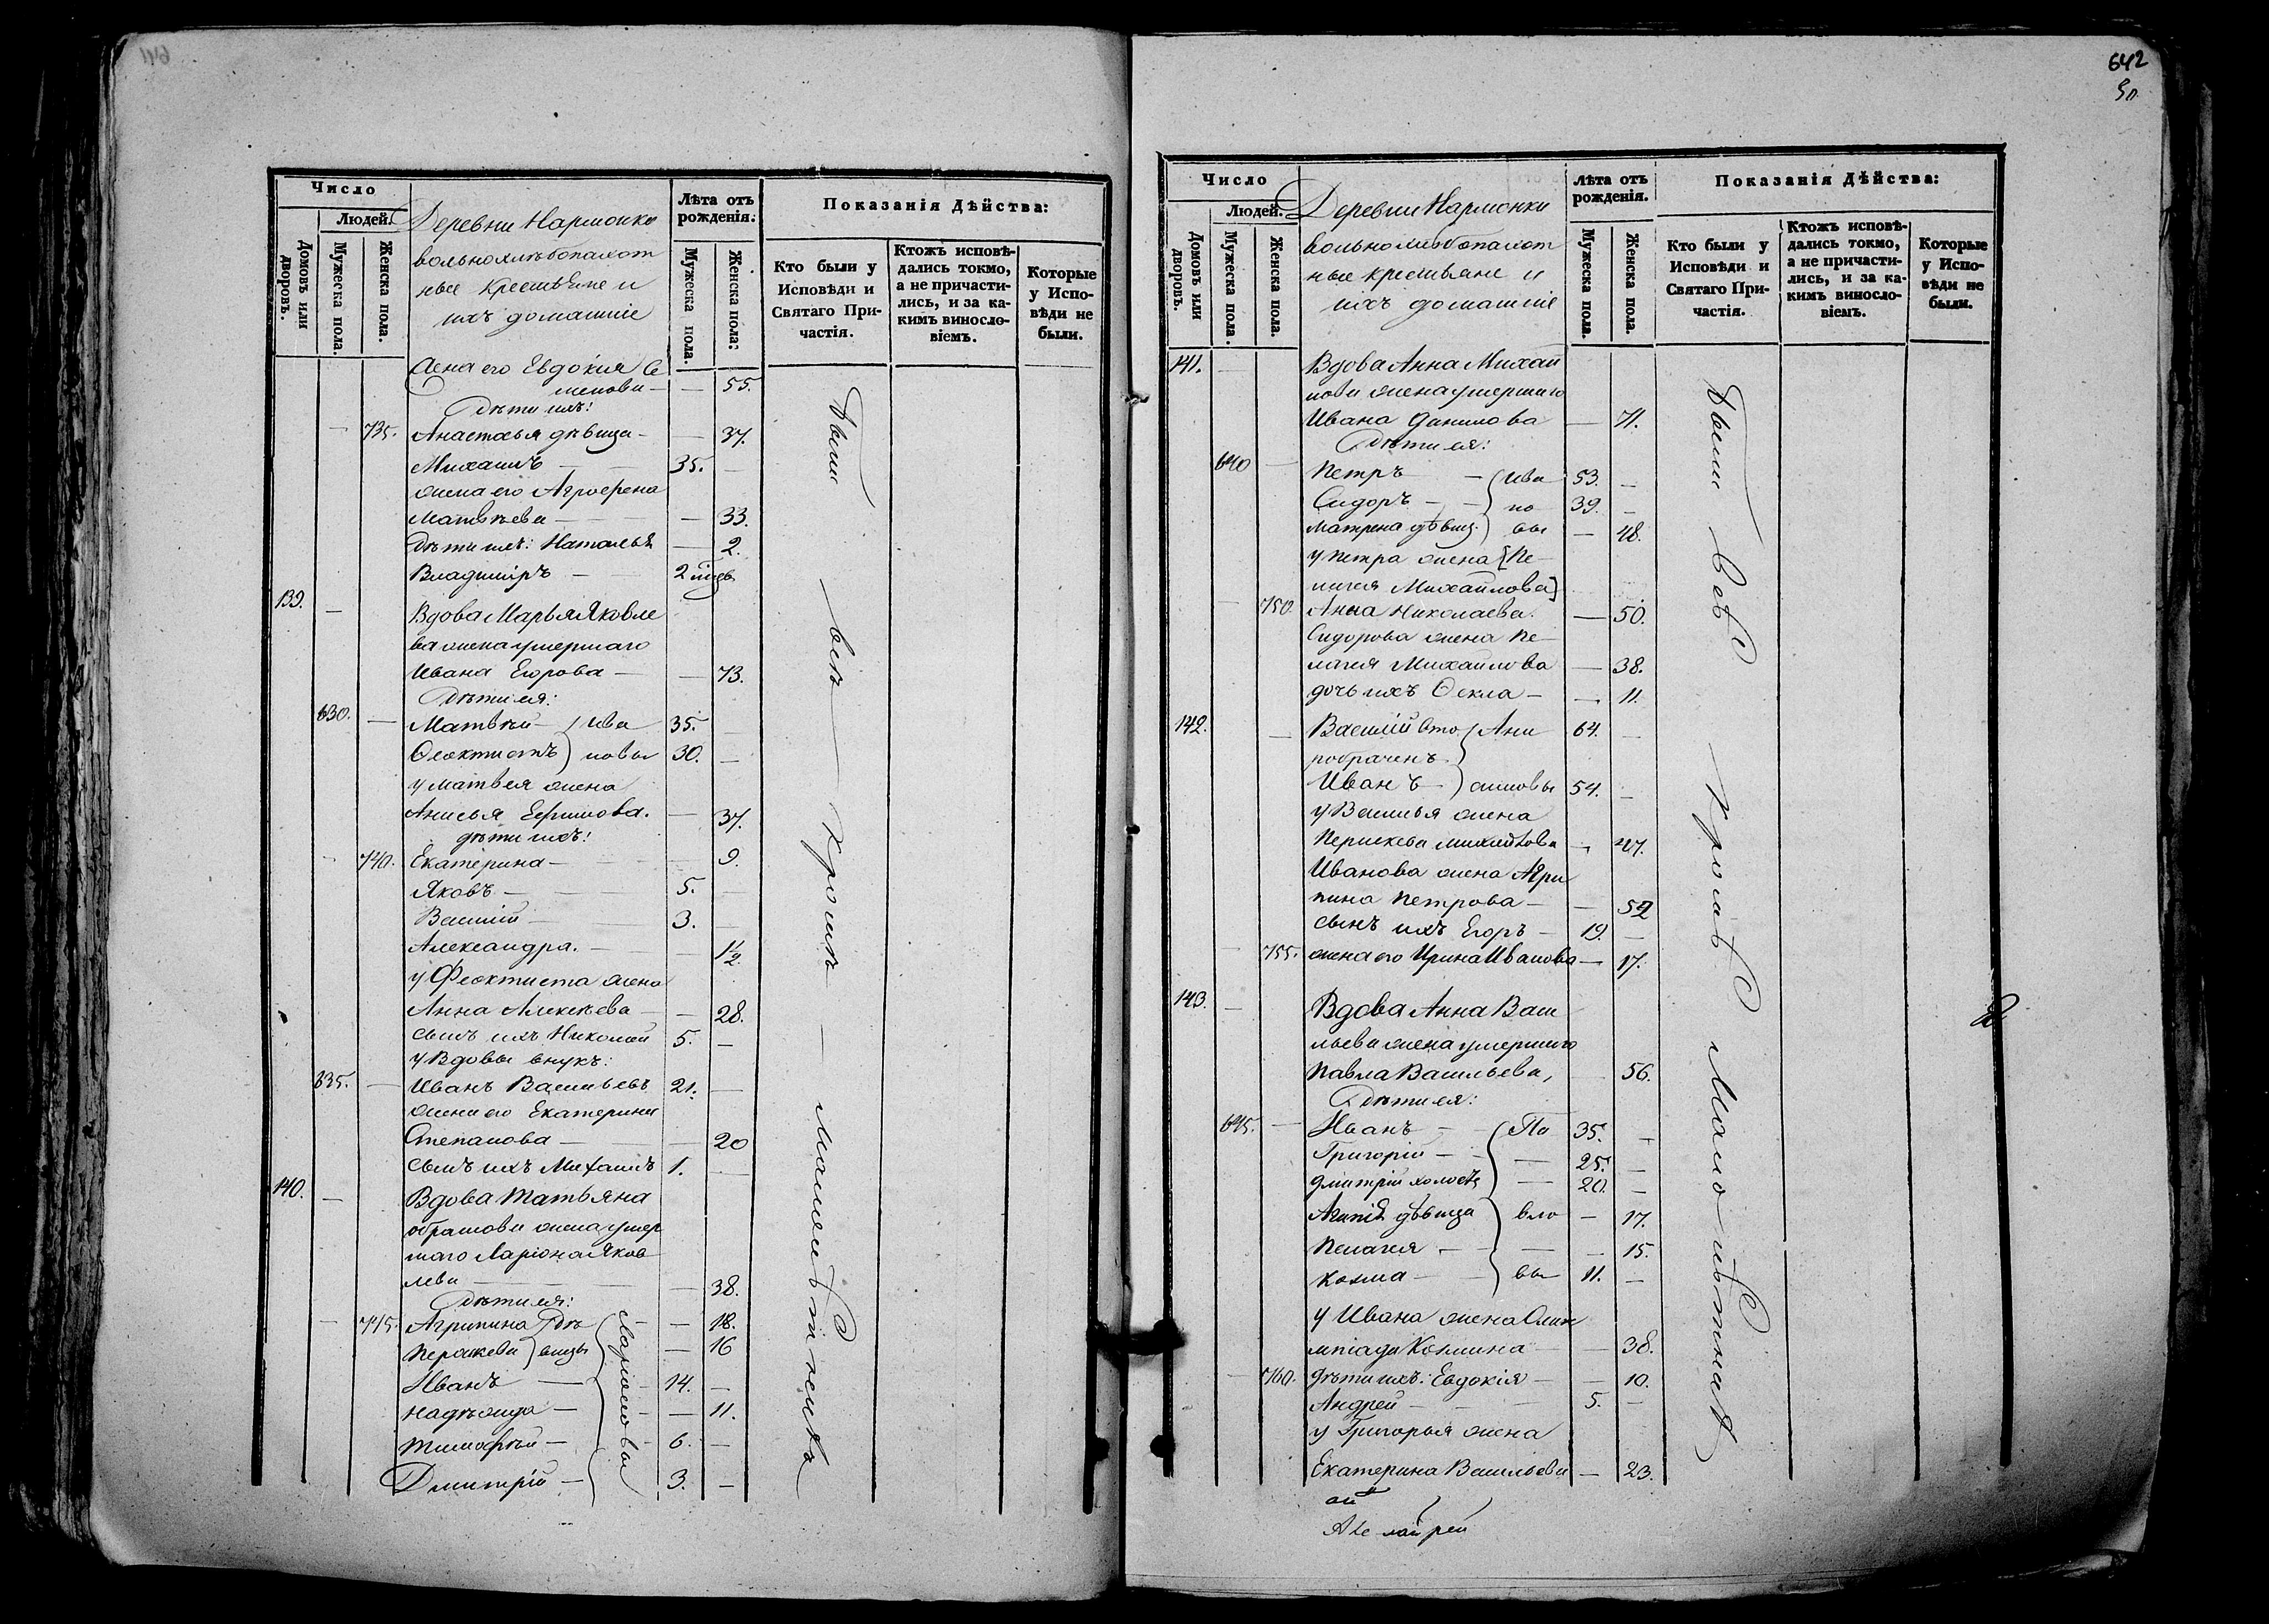 641
Число
Людей.
Домовъ или дворовъ.
Мужеска пола.
Женска пола.
Деревни Нармонки
вольнохлѣбопахот
ные крестьяне и
ихъ домашніе
Лѣта отъ рожденія.
Мужеска пола.
Женска пола.
Показанія Дѣйства:
Кто были у Исповѣди и Святаго Причастія.
Ктожъ исповѣдались токмо, а не причастились, и за какимъ винословіемъ.
Которые у Исповѣди не были.
жена его Евдокия Се
менова — — 55.
дѣти ихъ:
— 735. Анастасья дѣвица — — 37.
Михаилъ — 35. —
жена его Агрофена
Матвѣева — — 33.
дѣти ихъ: Наталья — 2.
Владиміръ — 2
139. — Вдова Марья Яковле
ва жена умершаго
Ивана Егорова — — 73.
дѣти ея:
630. — Матвѣй — Ива 35. —
Ѳеоктистъ новы 30. —
у Матвея жена
Анисья Ефимова. — 37.
дѣти ихъ:
— 740. Екатерина — — 9.
Яковъ — 5. —
Василій — 3. —
Александра. — — 1/2
у Феоктиста жена
Анна Алексѣева — — 28.
сынъ ихъ Николай 5. —
у Вдовы внукъ:
635. — Иванъ Васильевъ 21. —
жена его Екатерина
Степанова — — 20
сынъ ихъ Михаилъ 1. —
140. — Вдова Татьяна
Абрамова жена умер
шаго Ларіона Яков
лева — — 38.
дѣти ея:
— 745. Агрипина дѣ — 18.
Параскева вицы — 16
Иванъ — 14. —
Надѣжда — — 11.
Тимофѣй — 6. —
Дмитрій — 3. —
Ларіоновы
были — всѣ — кромѣ — малолѣтнихъ
642
Число
Людей.
Домовъ или дворовъ.
Мужеска пола.
Женска пола.
Деревни Нармонки
вольнохлѣбопахот
ные крестьяне и
ихъ домашніе
Лѣта отъ рожденія.
Мужеска пола.
Женска пола.
Показанія Дѣйства:
Кто были у Исповѣди и Святаго Причастія.
Ктожъ исповѣдались токмо, а не причастились, и за какимъ винословіемъ.
Которые у Исповѣди не были.
141. — Вдова Анна Михай
лова жена умершаго
Ивана Данилова — 71.
дѣти ея:
640 — Петръ — Ива 53. —
Сидоръ — но 39. —
Матрена дѣвиц. вы — 48.
у Петра жена [Пе
лагея Михайлова]
— 750. Анна Николаева. — 50.
Сидорова жена Пе
лагея Михайлова — 38.
дочь ихъ Ѳекла — — 11.
142. — Василій вто Ани 64. —
робраченъ
Иванъ — симовы 54. —
у Василья жена
Параскева — 47.
Иванова жена Агри
пина Петрова — — 52
сынъ ихъ Егоръ — 19. —
— 755. жена его Ирина Иванова — 17.
143. — Вдова Анна Васи
льева жена умершаго
Павла Васильева, 56.
дѣти ея:
645. — Иванъ — Па 35. —
Григорій — — 25. —
Дмитрій холостъ — 20. —
дѣвица вло — 17.
Пелагея — — — 15.
Козма — вы 11. —
у Ивана жена Олим
піада Козмина — — 38.
— 760. дѣти ихъ: Евдокія — — 10.
Андрей — 5. —
у Григорья жена
Екатерина Васильева — 23.
были всѣ кромѣ малолѣтнихъ